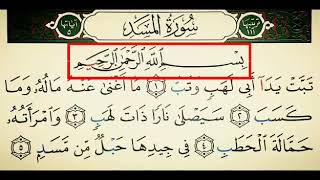 ترتيبها ١١١ سورة المسد آياتها ٥
بِسْمِ اللَّهِ الرَّحْمَٰنِ الرَّحِيمِ
تَبَّتْ يَدَا أَبِي لَهَبٍ وَتَبَّ ١ مَا أَغْنَىٰ عَنْهُ مَالُهُ وَمَا
كَسَبَ ٢ سَيَصْلَىٰ نَارًا ذَاتَ لَهَبٍ ٣ وَامْرَأَتُهُ
حَمَّالَةَ الْحَطَبِ ٤ فِي جِيدِهَا حَبْلٌ مِّن مَّسَدٍ ٥